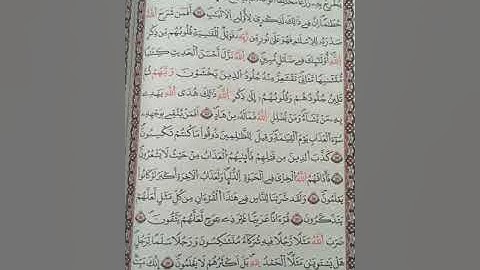 يُخْرِجُ بِهِ زَرْعًا مُّخْتَلِفًا
حُطَٰمًا إِنَّ فِي ذَٰلِكَ لَذِكْرَىٰ لِأُو۟لِي ٱلْأَلْبَٰبِ ۝ أَفَمَن شَرَحَ ٱللَّهُ
صَدْرَهُۥ لِلْإِسْلَٰمِ فَهُوَ عَلَىٰ نُورٍ مِّن رَّبِّهِۦ فَوَيْلٌ لِّلْقَٰسِيَةِ قُلُوبُهُم مِّن ذِكْرِ
ٱللَّهِ أُو۟لَٰٓئِكَ فِي ضَلَٰلٍ مُّبِينٍ ۝ ٱللَّهُ نَزَّلَ أَحْسَنَ ٱلْحَدِيثِ كِتَٰبًا
مُّتَشَٰبِهًا مَّثَانِيَ تَقْشَعِرُّ مِنْهُ جُلُودُ ٱلَّذِينَ يَخْشَوْنَ رَبَّهُمْ ثُمَّ
تَلِينُ جُلُودُهُمْ وَقُلُوبُهُمْ إِلَىٰ ذِكْرِ ٱللَّهِ ذَٰلِكَ هُدَى ٱللَّهِ يَهْدِي
بِهِۦ مَن يَشَآءُ وَمَن يُضْلِلِ ٱللَّهُ فَمَا لَهُۥ مِنْ هَادٍ ۝ أَفَمَن يَتَّقِي بِوَجْهِهِۦ
سُوٓءَ ٱلْعَذَابِ يَوْمَ ٱلْقِيَٰمَةِ وَقِيلَ لِلظَّٰلِمِينَ ذُوقُوا۟ مَا كُنتُمْ تَكْسِبُونَ
۝ كَذَّبَ ٱلَّذِينَ مِن قَبْلِهِمْ فَأَتَىٰهُمُ ٱلْعَذَابُ مِنْ حَيْثُ لَا يَشْعُرُونَ
۝ فَأَذَاقَهُمُ ٱللَّهُ ٱلْخِزْيَ فِي ٱلْحَيَوٰةِ ٱلدُّنْيَا وَلَعَذَابُ ٱلْأَخِرَةِ أَكْبَرُ لَوْ كَانُوا۟
يَعْلَمُونَ ۝ وَلَقَدْ ضَرَبْنَا لِلنَّاسِ فِي هَٰذَا ٱلْقُرْءَانِ مِن كُلِّ مَثَلٍ لَّعَلَّهُمْ
يَتَذَكَّرُونَ ۝ قُرْءَانًا عَرَبِيًّا غَيْرَ ذِي عِوَجٍ لَّعَلَّهُمْ يَتَّقُونَ ۝
ضَرَبَ ٱللَّهُ مَثَلًا رَّجُلًا فِيهِ شُرَكَآءُ مُتَشَٰكِسُونَ وَرَجُلًا سَلَمًا لِّرَجُلٍ
هَلْ يَسْتَوِيَانِ مَثَلًا ٱلْحَمْدُ لِلَّهِ بَلْ أَكْثَرُهُمْ لَا يَعْلَمُونَ ۝ إِنَّكَ مَيِّتٌ